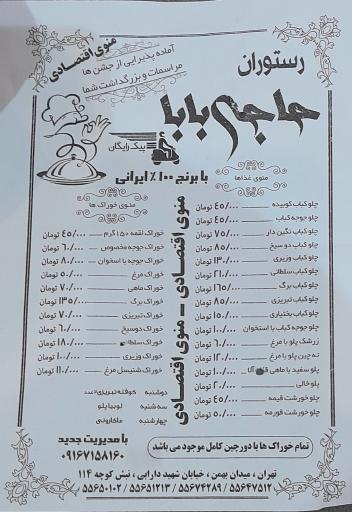 منوی اقتصادی
آماده پذیرایی از جشن ها
مراسمات و بزرگداشت شما
رستوران
حاجی بابا
پیک رایگان
با برنج ۱۰۰٪ ایرانی
منوی غذاها
چلو کباب کوبیده ۴۵/۰۰۰ تومان
چلو جوجه کباب ۴۵/۰۰۰ تومان
چلو کباب نگین دار ۷۵/۰۰۰ تومان
چلو کباب دو سیخ ۸۵/۰۰۰ تومان
چلو کباب وزیری ۱۳۰/۰۰۰ تومان
چلو کباب سلطانی ۲۱۰/۰۰۰ تومان
چلو کباب برگ ۱۶۵/۰۰۰ تومان
چلو کباب تبریزی ۸۵/۰۰۰ تومان
چلو کباب بختیاری ۱۵۰/۰۰۰ تومان
چلو جوجه کباب با استخوان ۱۰۰/۰۰۰ تومان
زرشک پلو با مرغ ۶۰/۰۰۰ تومان
ته چین پلو با مرغ ۱۲۰/۰۰۰ تومان
پلو سفید با ماهی ۱۰۰/۰۰۰ تومان
پلو خالی ۲۰/۰۰۰ تومان
چلو خورشت قیمه ۴۵/۰۰۰ تومان
چلو خورشت قورمه ۵۰/۰۰۰ تومان
منوی اقتصادی - منوی اقتصادی
منوی خوراک ها
خوراک لقمه ۱۵۰ گرم ۴۵/۰۰۰ تومان
خوراک جوجه مخصوص ۶۰/۰۰۰ تومان
خوراک جوجه با اسخوان ۸۰/۰۰۰ تومان
خوراک مرغ ۵۰/۰۰۰ تومان
خوراک ماهی ۷۰/۰۰۰ تومان
خوراک برگ ۱۳۵/۰۰۰ تومان
خوراک تبریزی ۷۰/۰۰۰ تومان
خوراک دوسیخ ۶۰/۰۰۰ تومان
خوراک سلطانی ۱۸۰/۰۰۰ تومان
خوراک وزیری ۱۰۰/۰۰۰ تومان
خوراک شنیسل مرغ ۱۱۰/۰۰۰ تومان
دوشنبه کوفته تبریزی
سه شنبه لوبیا پلو
چهارشنبه ماکارونی
با مدیریت جدید
۰۹۱۶۷۱۵۸۱۶۰
تمام خوراک ها با دورچین کامل موجود می باشد
تهران، میدان بهمن، خیابان شهید دارابی، نبش کوچه ۱۱۴
۵۵۶۴۷۵۱۲ / ۵۵۶۷۴۲۸۹ / ۵۵۶۵۱۲۱۳ / ۵۵۶۵۰۱۰۲